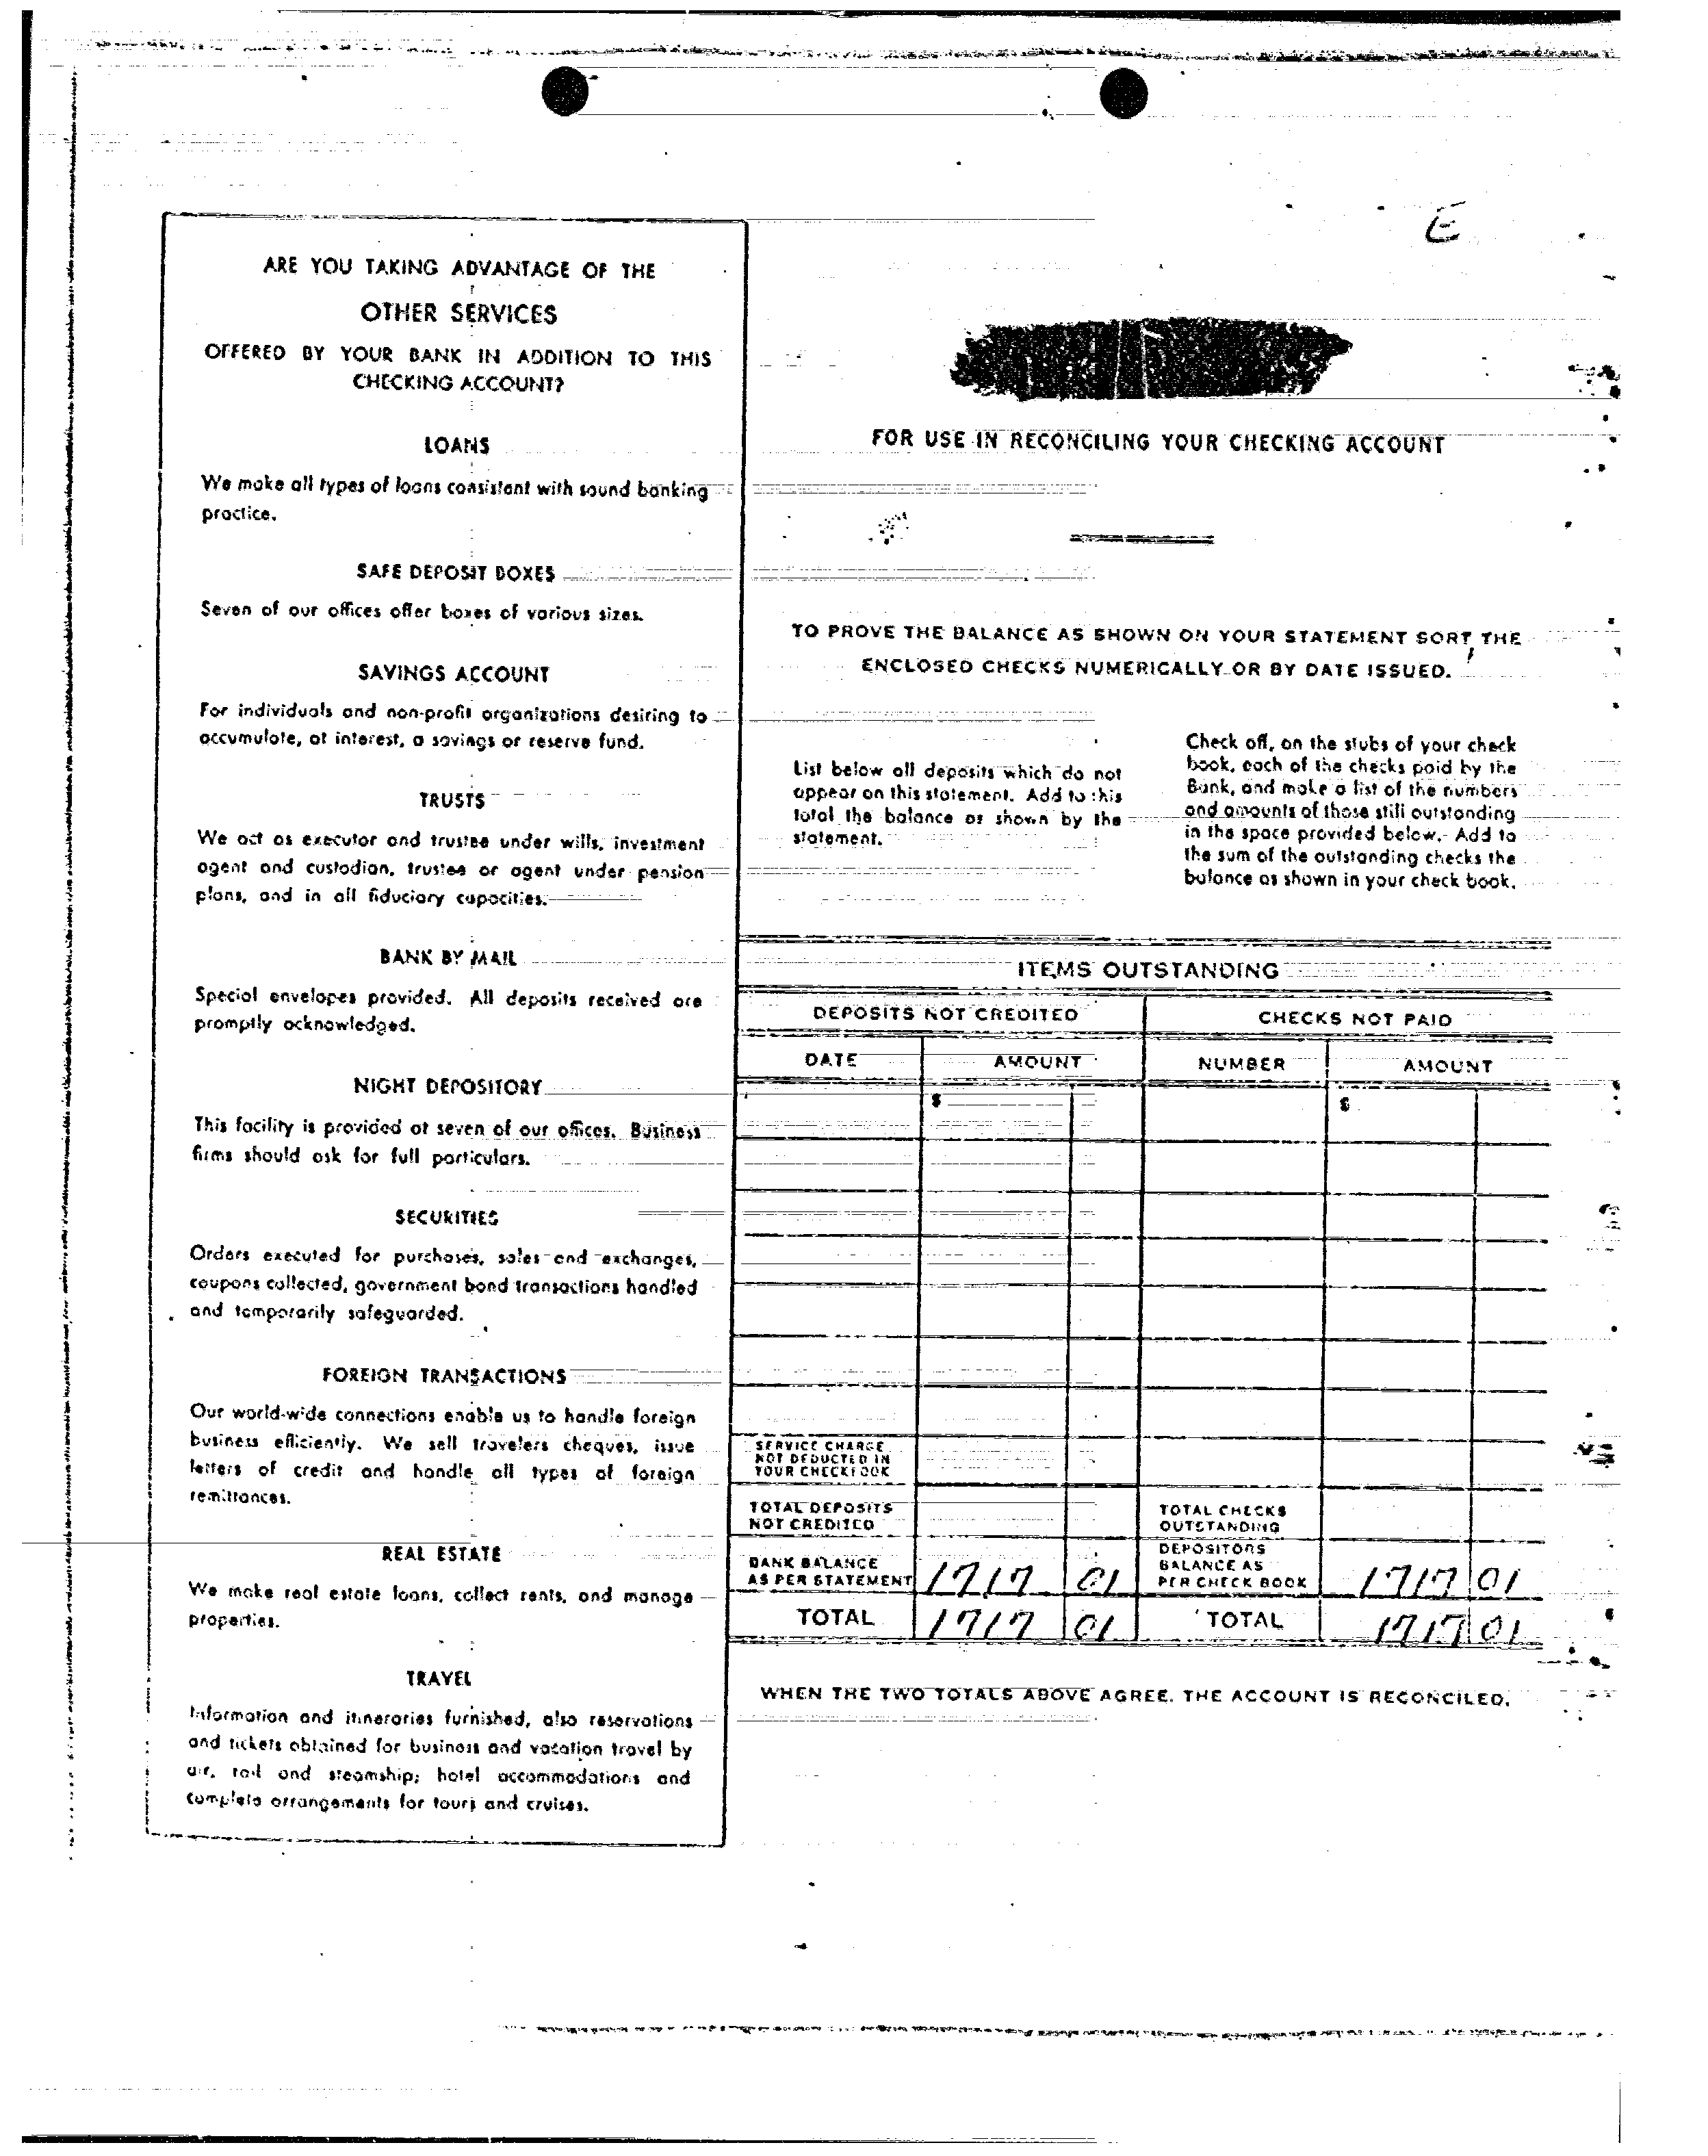 E
ARE YOU TAKING ADVANTAGE OF THE
OTHER SERVICES
OFFERED BY YOUR BANK IN ADDITION TO THIS
CHECKING ACCOUNT?
LOANS
We make all types of loans consistent with sound banking
practice.
SAFE DEPOSIT BOXES
Seven of our offices offer boxes of various sizes.
SAVINGS ACCOUNT
For individuals and non-profit organizations desiring to
accumulate, at interest, a savings or reserve fund.
TRUSTS
We act as executor and trustee under wills, investment
agent and custodian, trustee or agent under pension
plans, and in all fiduciary capacities.
BANK BY MAIL
Special envelopes provided. All deposits received are
promptly acknowledged.
NIGHT DEPOSITORY
This facility is provided at seven of our offices. Business
firms should ask for full particulars.
SECURITIES
Orders executed for purchases, sales and exchanges,
coupons collected, government bond transactions handled
and temporarily safeguarded.
FOREIGN TRANSACTIONS
Our world-wide connections enable us to handle foreign
business efficiently. We sell travelers cheques, issue
letters of credit and handle all types of foreign
remittances.
REAL ESTATE
We make real estate loans, collect rents, and manage
properties.
TRAVEL
Information and itineraries furnished, also reservations
and tickets obtained for business and vacation travel by
air, rail and steamship; hotel accommodations and
complete arrangements for tours and cruises.
FOR USE IN RECONCILING YOUR CHECKING ACCOUNT
TO PROVE THE BALANCE AS SHOWN ON YOUR STATEMENT SORT THE
ENCLOSED CHECKS NUMERICALLY OR BY DATE ISSUED.
List below all deposits which do not
appear on this statement. Add to this
total the balance as shown by the
statement.
Check off, on the stubs of your check
book, each of the checks paid by the
Bank, and make a list of the numbers
and amounts of those still outstanding
in the space provided below. Add to
the sum of the outstanding checks the
balance as shown in your check book.
ITEMS OUTSTANDING
DEPOSITS NOT CREDITED CHECKS NOT PAID
DATE AMOUNT NUMBER AMOUNT
$ $
SERVICE CHARGE
NOT DEDUCTED IN
YOUR CHECKBOOK
TOTAL DEPOSITS
NOT CREDITED
TOTAL CHECKS
OUTSTANDING
BANK BALANCE
AS PER STATEMENT 1717 01
DEPOSITORS
BALANCE AS
PER CHECK BOOK 1717 01
TOTAL 1717 01 TOTAL 1717 01
WHEN THE TWO TOTALS ABOVE AGREE, THE ACCOUNT IS RECONCILED.